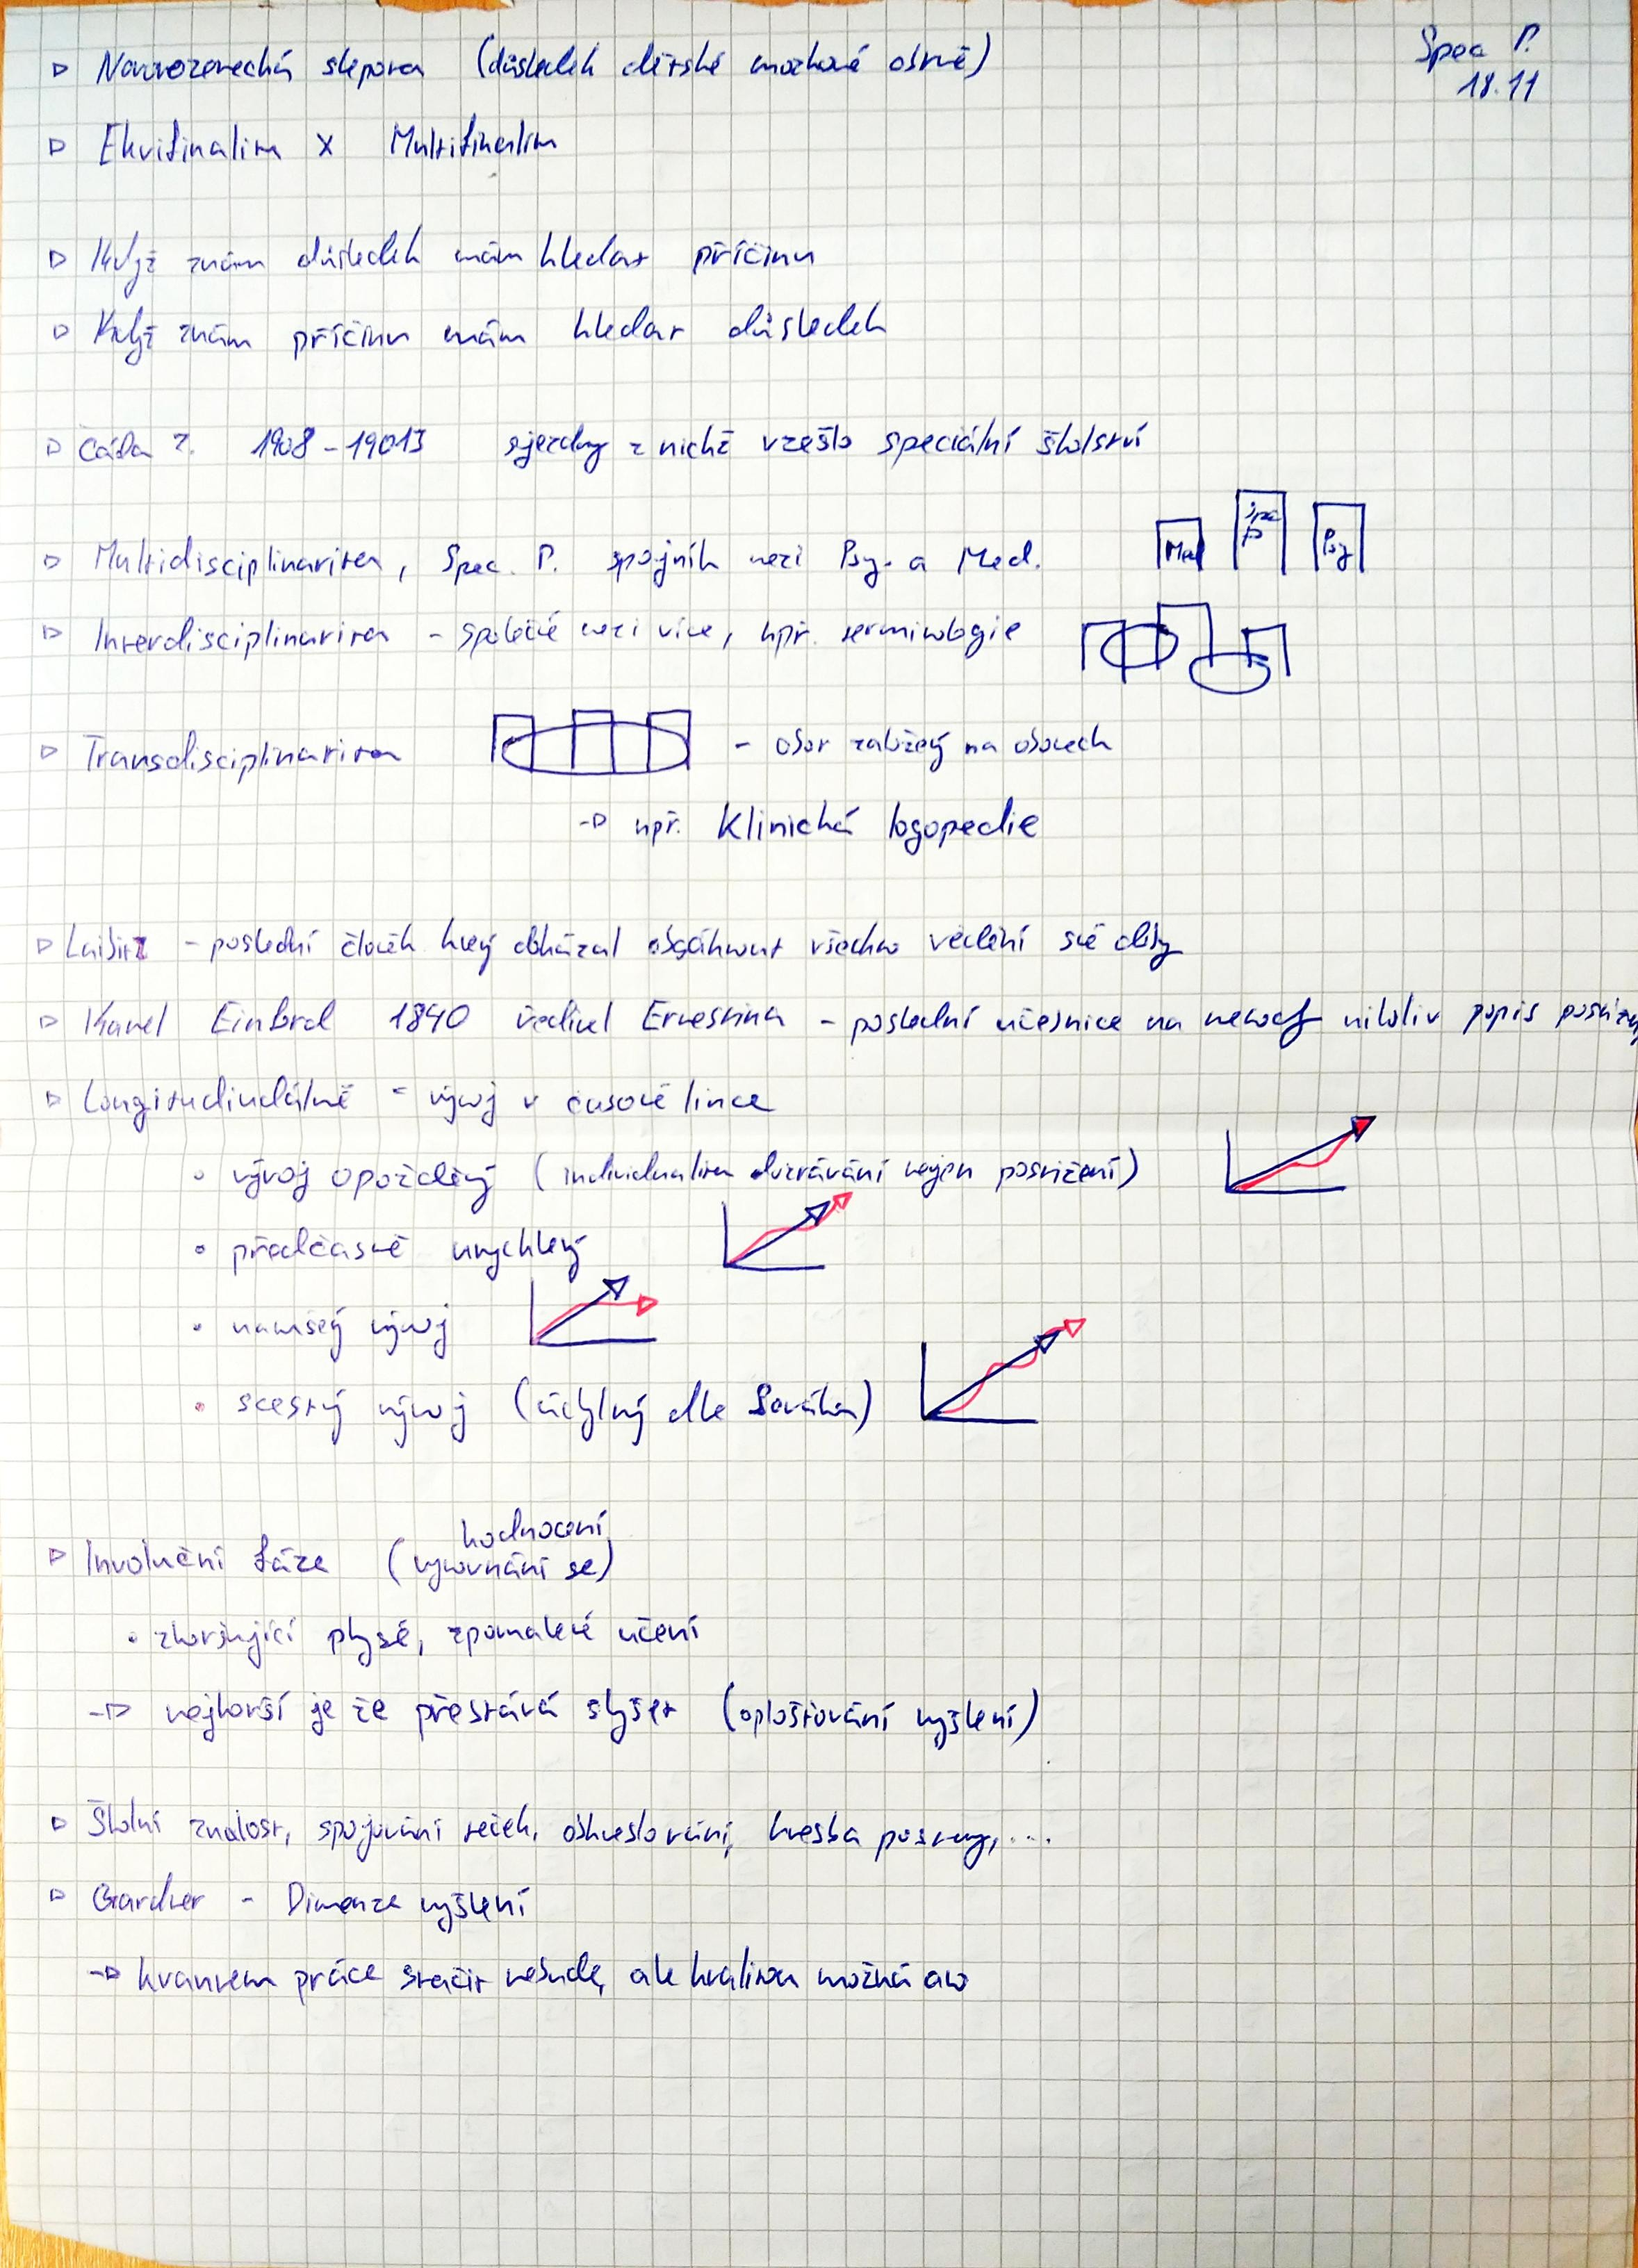 Spec P.
18.11
▷ Novorozenecká slepota (důsledek dětské mozkové obrně)
▷ Ekvifinalita x Multifinalita
▷ Když znám důsledek mám hledat příčinu
▷ Když znám příčinu mám hledat důsledek
▷ Čáda ?. 1908 - 19013 sjezdy z nichž vzešlo speciální školství
▷ Multidisciplinarita, Spec. P. spojník mezi Psy. a Med.
Med Spec P Psy
▷ Interdisciplinarita - společné mezi více, např. terminologie
▷ Transdisciplinarita - obor založený na oborech
-▷ např. Klinická logopedie
▷ Laibitz - poslední člověk který dokázal obsáhnout všechno vědění své doby
▷ Karel 1840 Ernestina - poslední účesnice na nemoc nikoliv popis
▷ Longitudinálně = vývoj v časové lince
• vývoj opožděný (individualita dozrávání nejen postižení)
• předčasně urychlený
• narušený vývoj
• scestný vývoj (úchylný dle Sováka)
▷ Involuční fáze (hodnocení, vyrovnání se)
• zhoršující physé, zpomalené učení
-▷ nejhorší je že přestává slyšet (oplošťování myšlení)
▷ Školní znalost, spojování teček, obkreslování, kresba postavy, ...
▷ Gardner - Dimenze myšlení
-▷ kvantem práce stačit nebude, ale kvalitou možná ano